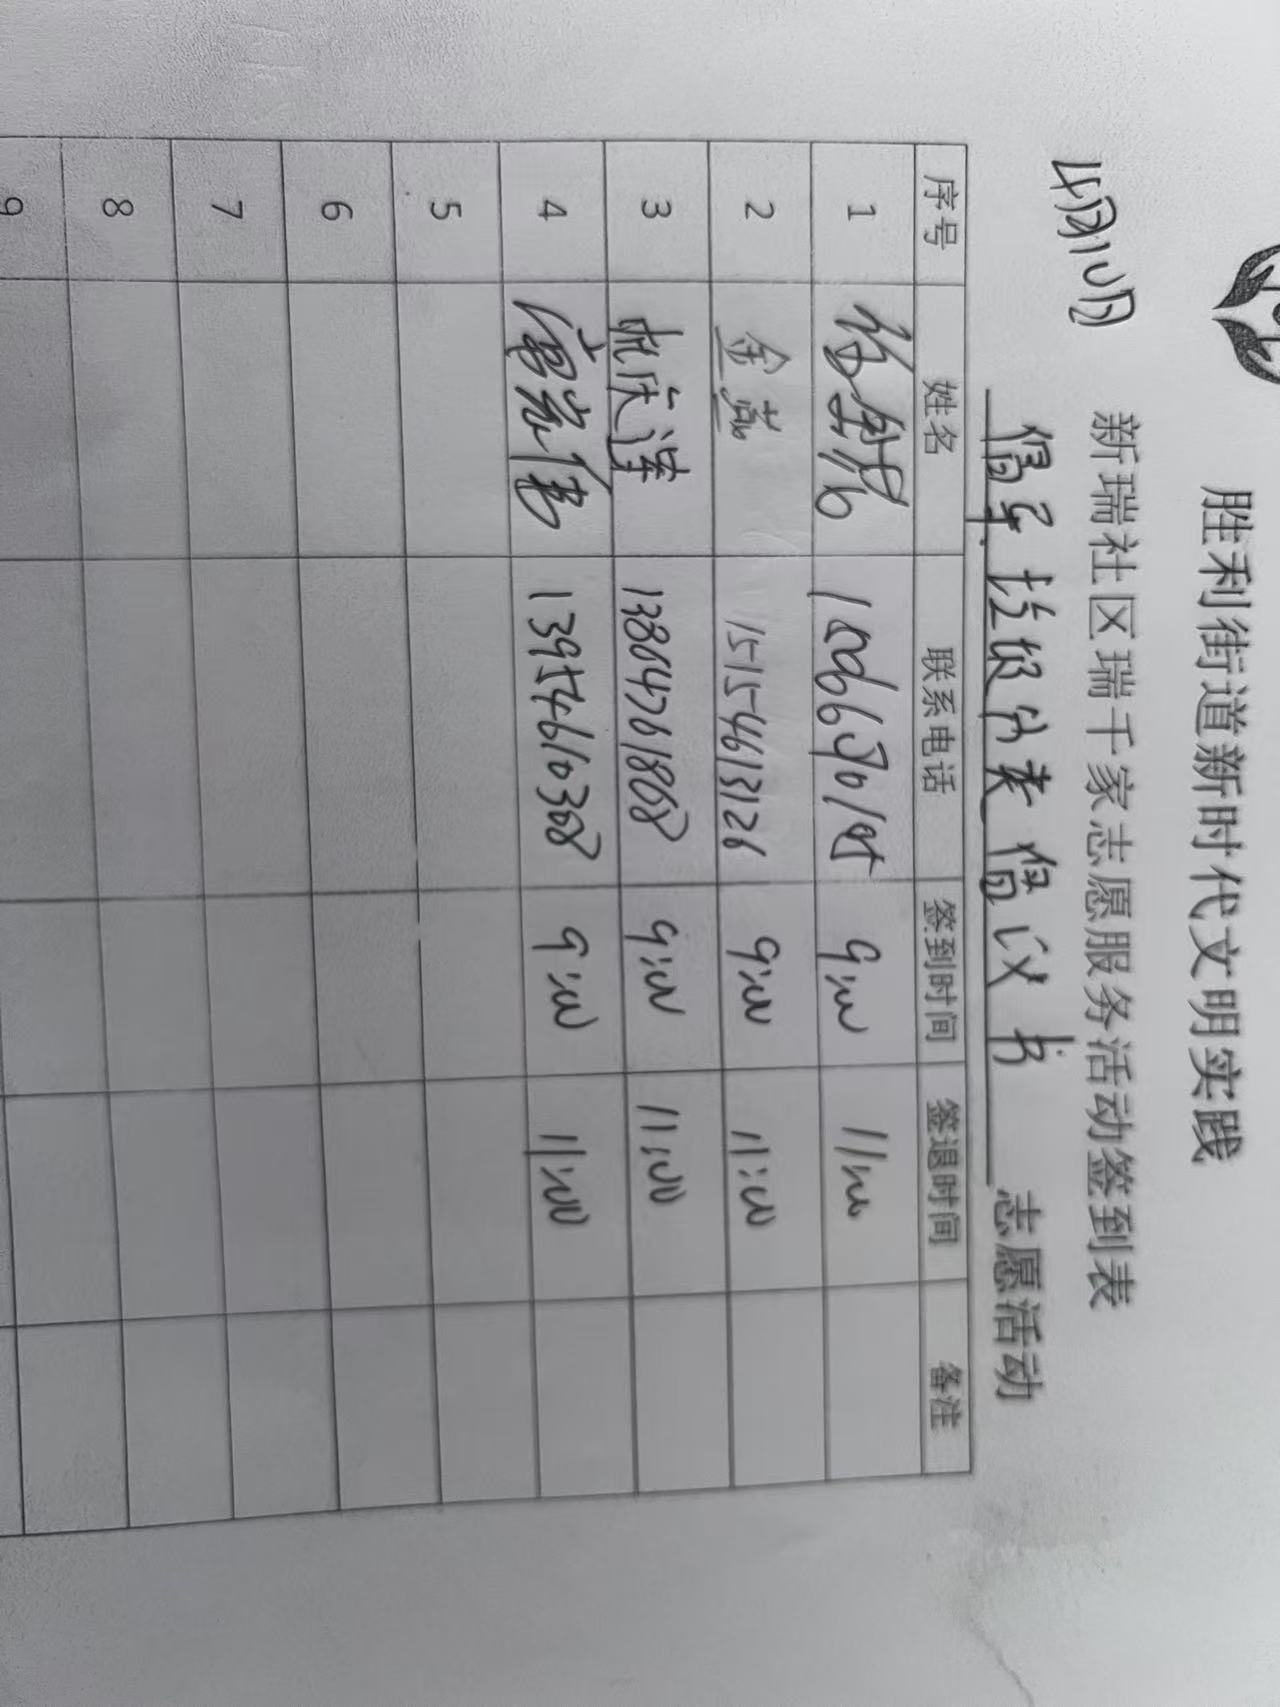 胜利街道新时代文明实践
新瑞社区瑞千家志愿服务活动签到表
4月10日
倡导垃圾分类倡议书 志愿活动
序号 姓名 联系电话 签到时间 签退时间 备注
1 9:00 11:00
2 金 15154613126 9:00 11:00
3 杭庆莲 13864761868 9:00 11:00
4 13954610368 9:00 11:00
5
6
7
8
9